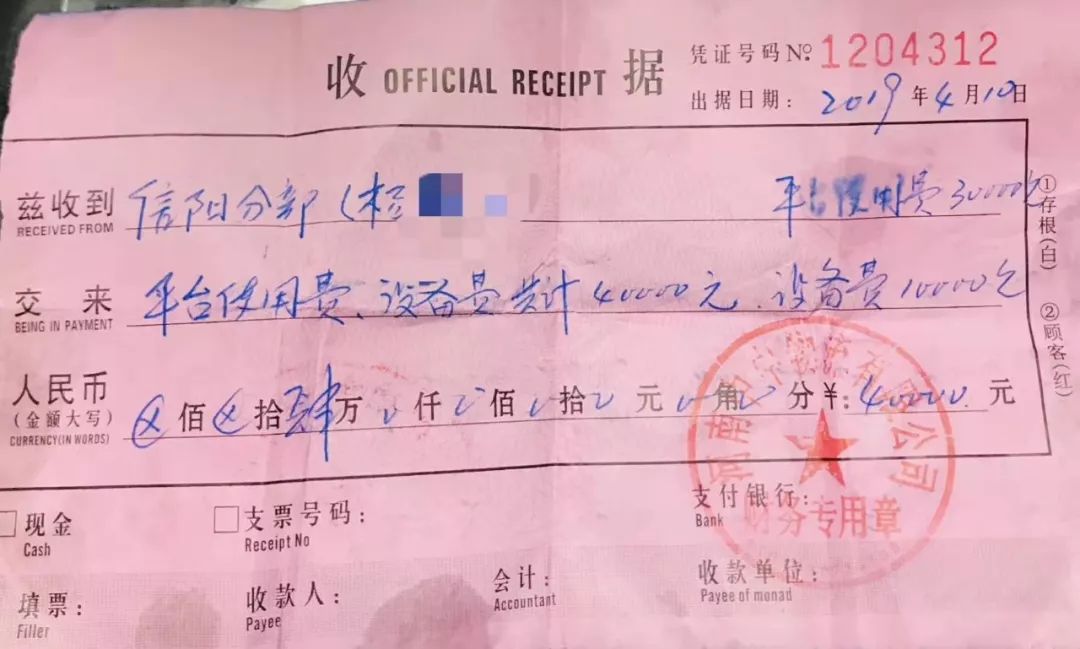 收 OFFICIAL RECEIPT 据
凭证号码 Nº: 1204312
出据日期: 2019年4月10日
兹收到 信阳分部(
RECEIVED FROM
平台使用费30000元
交来 平台使用费、设备费共计40000元、设备费10000元
BEING IN PAYMENT
人民币 ⊗佰⊗拾肆万0仟0佰0拾0元0角0分¥: 40000.元
(金额大写)
CURRENCY(IN WORDS)
①存根(白)
②顾客(红)
河南 有限公司
财务专用章
□现金
Cash
□支票号码:
Receipt No
支付银行:
Bank
填票:
Filler
收款人:
Payee
会计:
Accountant
收款单位:
Payee of monad